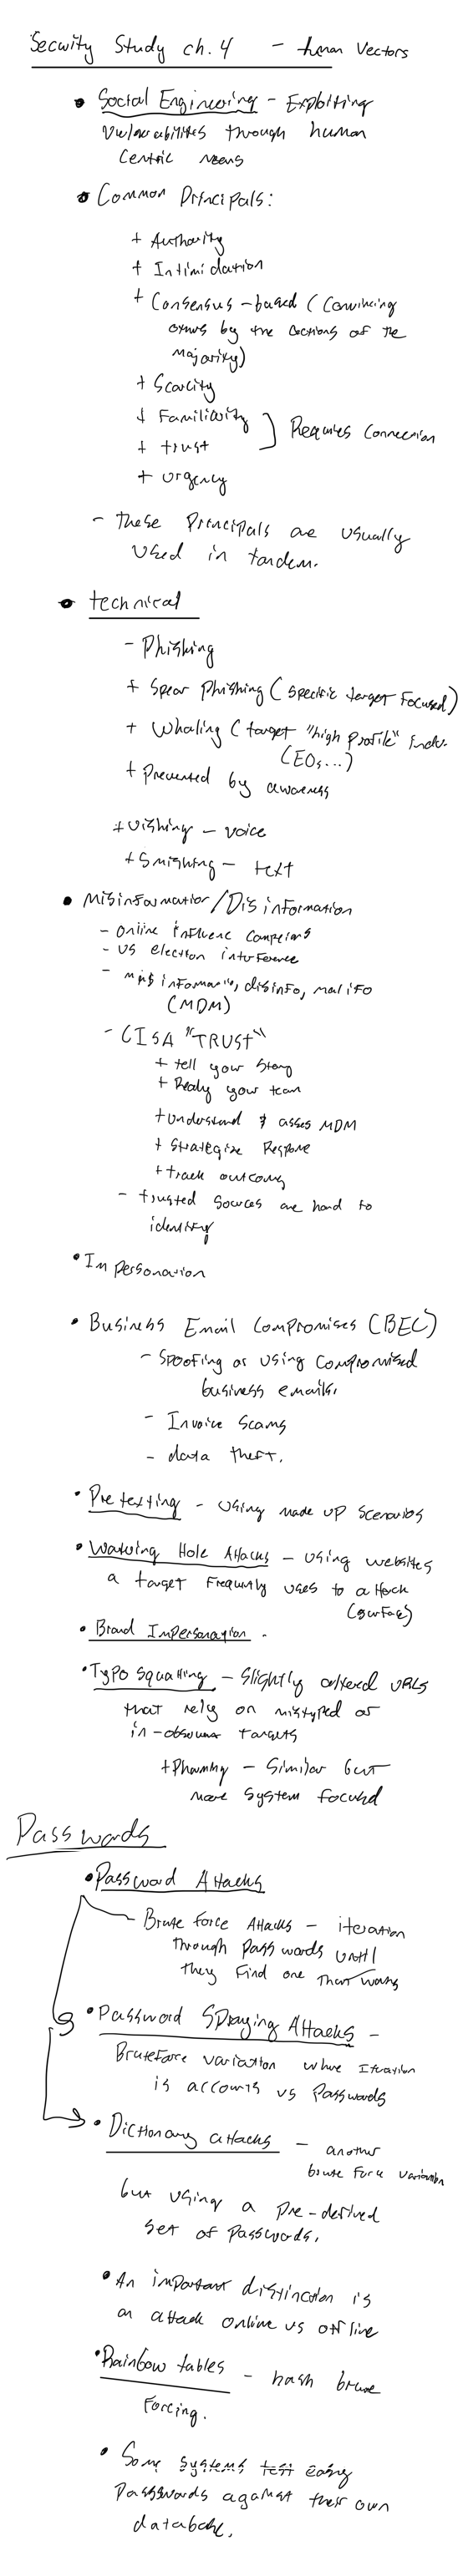 Security Study ch. 4 - human Vectors
• Social Engineering - Exploiting
vulnerabilities through human
Centric means
• Common Principals:
+ Authority
+ Intimidation
+ Consensus-based (Convincing
others by the actions of the
majority)
+ Scarcity
+ Familiarity
+ trust
} Requires Connection
+ urgency
- these Principals are usually
used in tandem.
• technical
- Phishing
+ Spear phishing (specific target focused)
+ Whaling (target "high profile" indv.
(EOs...)
+ prevented by awareness
+ vishing - voice
+ Smishing - text
• Misinformation/Disinformation
- online influence campaigns
- US election interference
- misinformation, disinfo, malifo
(MDM)
- CISA "TRUST"
+ tell your story
+ Ready your team
+ understand & asses MDM
+ Strategize Response
+ track outcomes
- trusted sources are hard to
identify
• Impersonation
• Business Email Compromises (BEC)
- Spoofing or using compromised
business emails.
- Invoice scams
- data theft.
• Pretexting - using made up scenarios
• Watering Hole Attacks - Using websites
a target frequently uses to attack
(surface)
• Brand Impersonation.
• Typo squatting - Slightly altered URLs
that rely on mistyped or
targets
+ Pharming - Similar but
more system focused
Passwords
• Password Attacks
- Brute Force Attacks - iteration
through passwords until
they find one that works
• Password Spraying Attacks -
Bruteforce variation where Iteration
is accounts vs Passwords
• Dictionary attacks - another
brute force variation
but using a pre-defined
set of passwords.
• An important distinction is
an attack online vs offline
• Rainbow tables - hash brute
Forcing.
• Some systems test easy
passwords against their own
database.